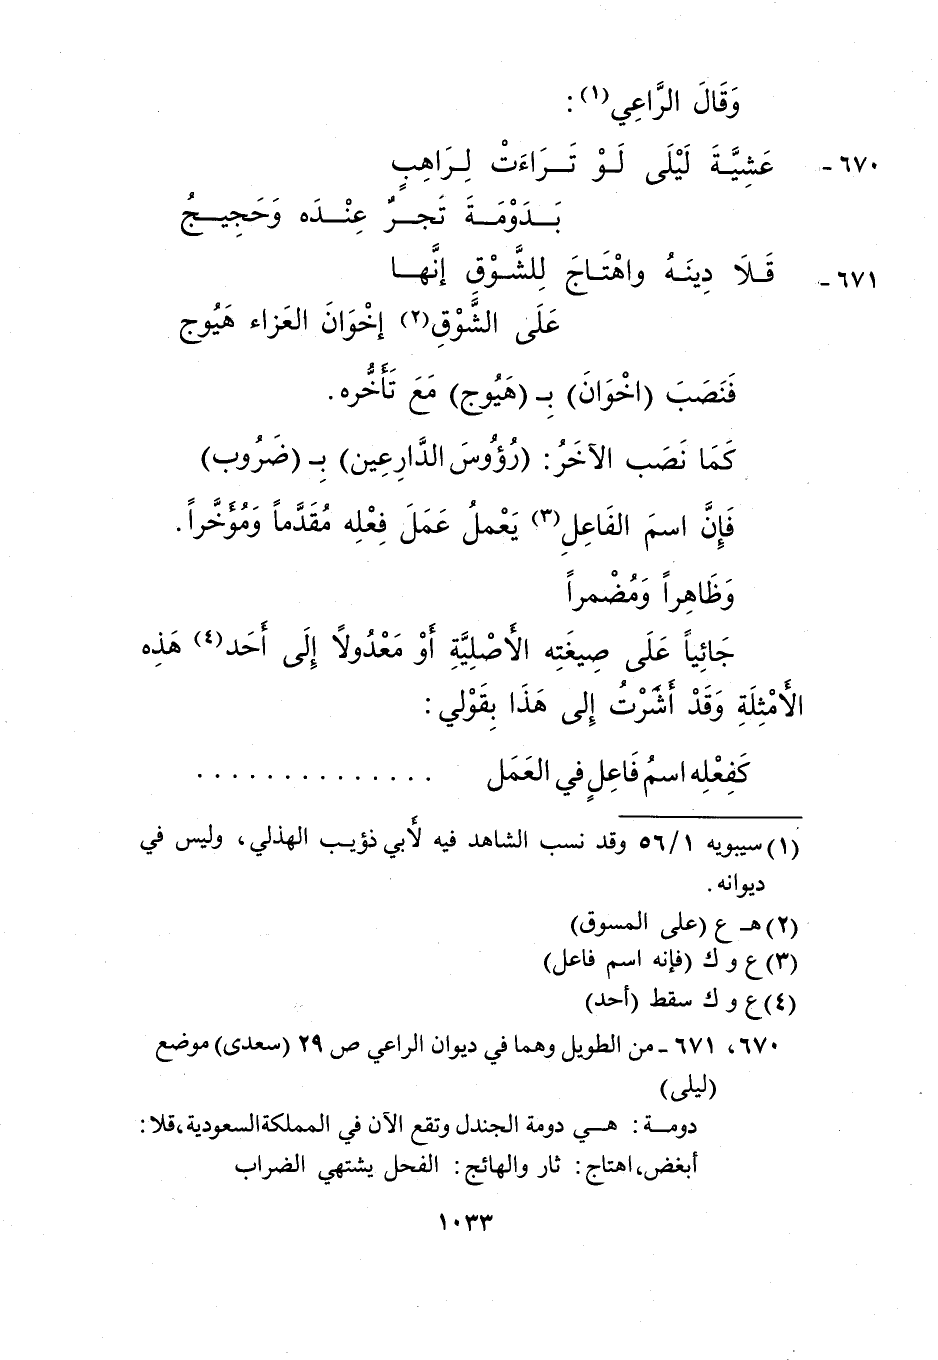 وَقَالَ الرَّاعِي(١):
٦٧٠ - عَشِيَّةَ لَيْلَى لَوْ تَرَاءَتْ لِرَاهِبٍ
بَدَوْمَةَ تَجرٌ عِنْدَه وَحَجِيجُ
٦٧١ - قَلَا دِينَهُ واهْتَاجَ لِلشَّوْقِ إنَّها
عَلَى الشَّوْقِ(٢) إخْوَانَ العَزاء هَيُوج
فَنَصَبَ (اخْوَانَ) بِـ (هَيُوج) مَعَ تَأَخُّره.
كَمَا نَصَب الآخَرُ: (رُؤُوسَ الدَّارِعِين) بِـ (ضَرُوب)
فَإِنَّ اسمَ الفَاعِلِ(٣) يَعْملُ عَمَلَ فِعْلِه مُقَدَّماً وَمُؤَخَّراً.
وَظَاهِراً وَمُضْمراً
جَائِياً عَلَى صِيغَتِه الأَصْلِيَّةِ أَوْ مَعْدُولاً إِلَى أَحَد(٤) هَذِه
الأَمْثِلَةِ وَقَدْ أَشَرْتُ إِلى هَذَا بِقَوْلي:
كَفِعْلِه اسمُ فَاعِلٍ في العَمَل . . . . . . . . . . . . . .
(١) سيبويه ٥٦/١ وقد نسب الشاهد فيه لأبي ذؤيب الهذلي، وليس في
ديوانه.
(٢) هـ ع (على المسوق)
(٣) ع و ك (فإنه اسم فاعل)
(٤) ع و ك سقط (أحد)
٦٧٠، ٦٧١ - من الطويل وهما في ديوان الراعي ص ٢٩ (سعدى) موضع
(ليلى)
دومة: هي دومة الجندل وتقع الآن في المملكة السعودية، قلا:
أبغض، اهتاج: ثار والهائج: الفحل يشتهي الضراب
١٠٣٣